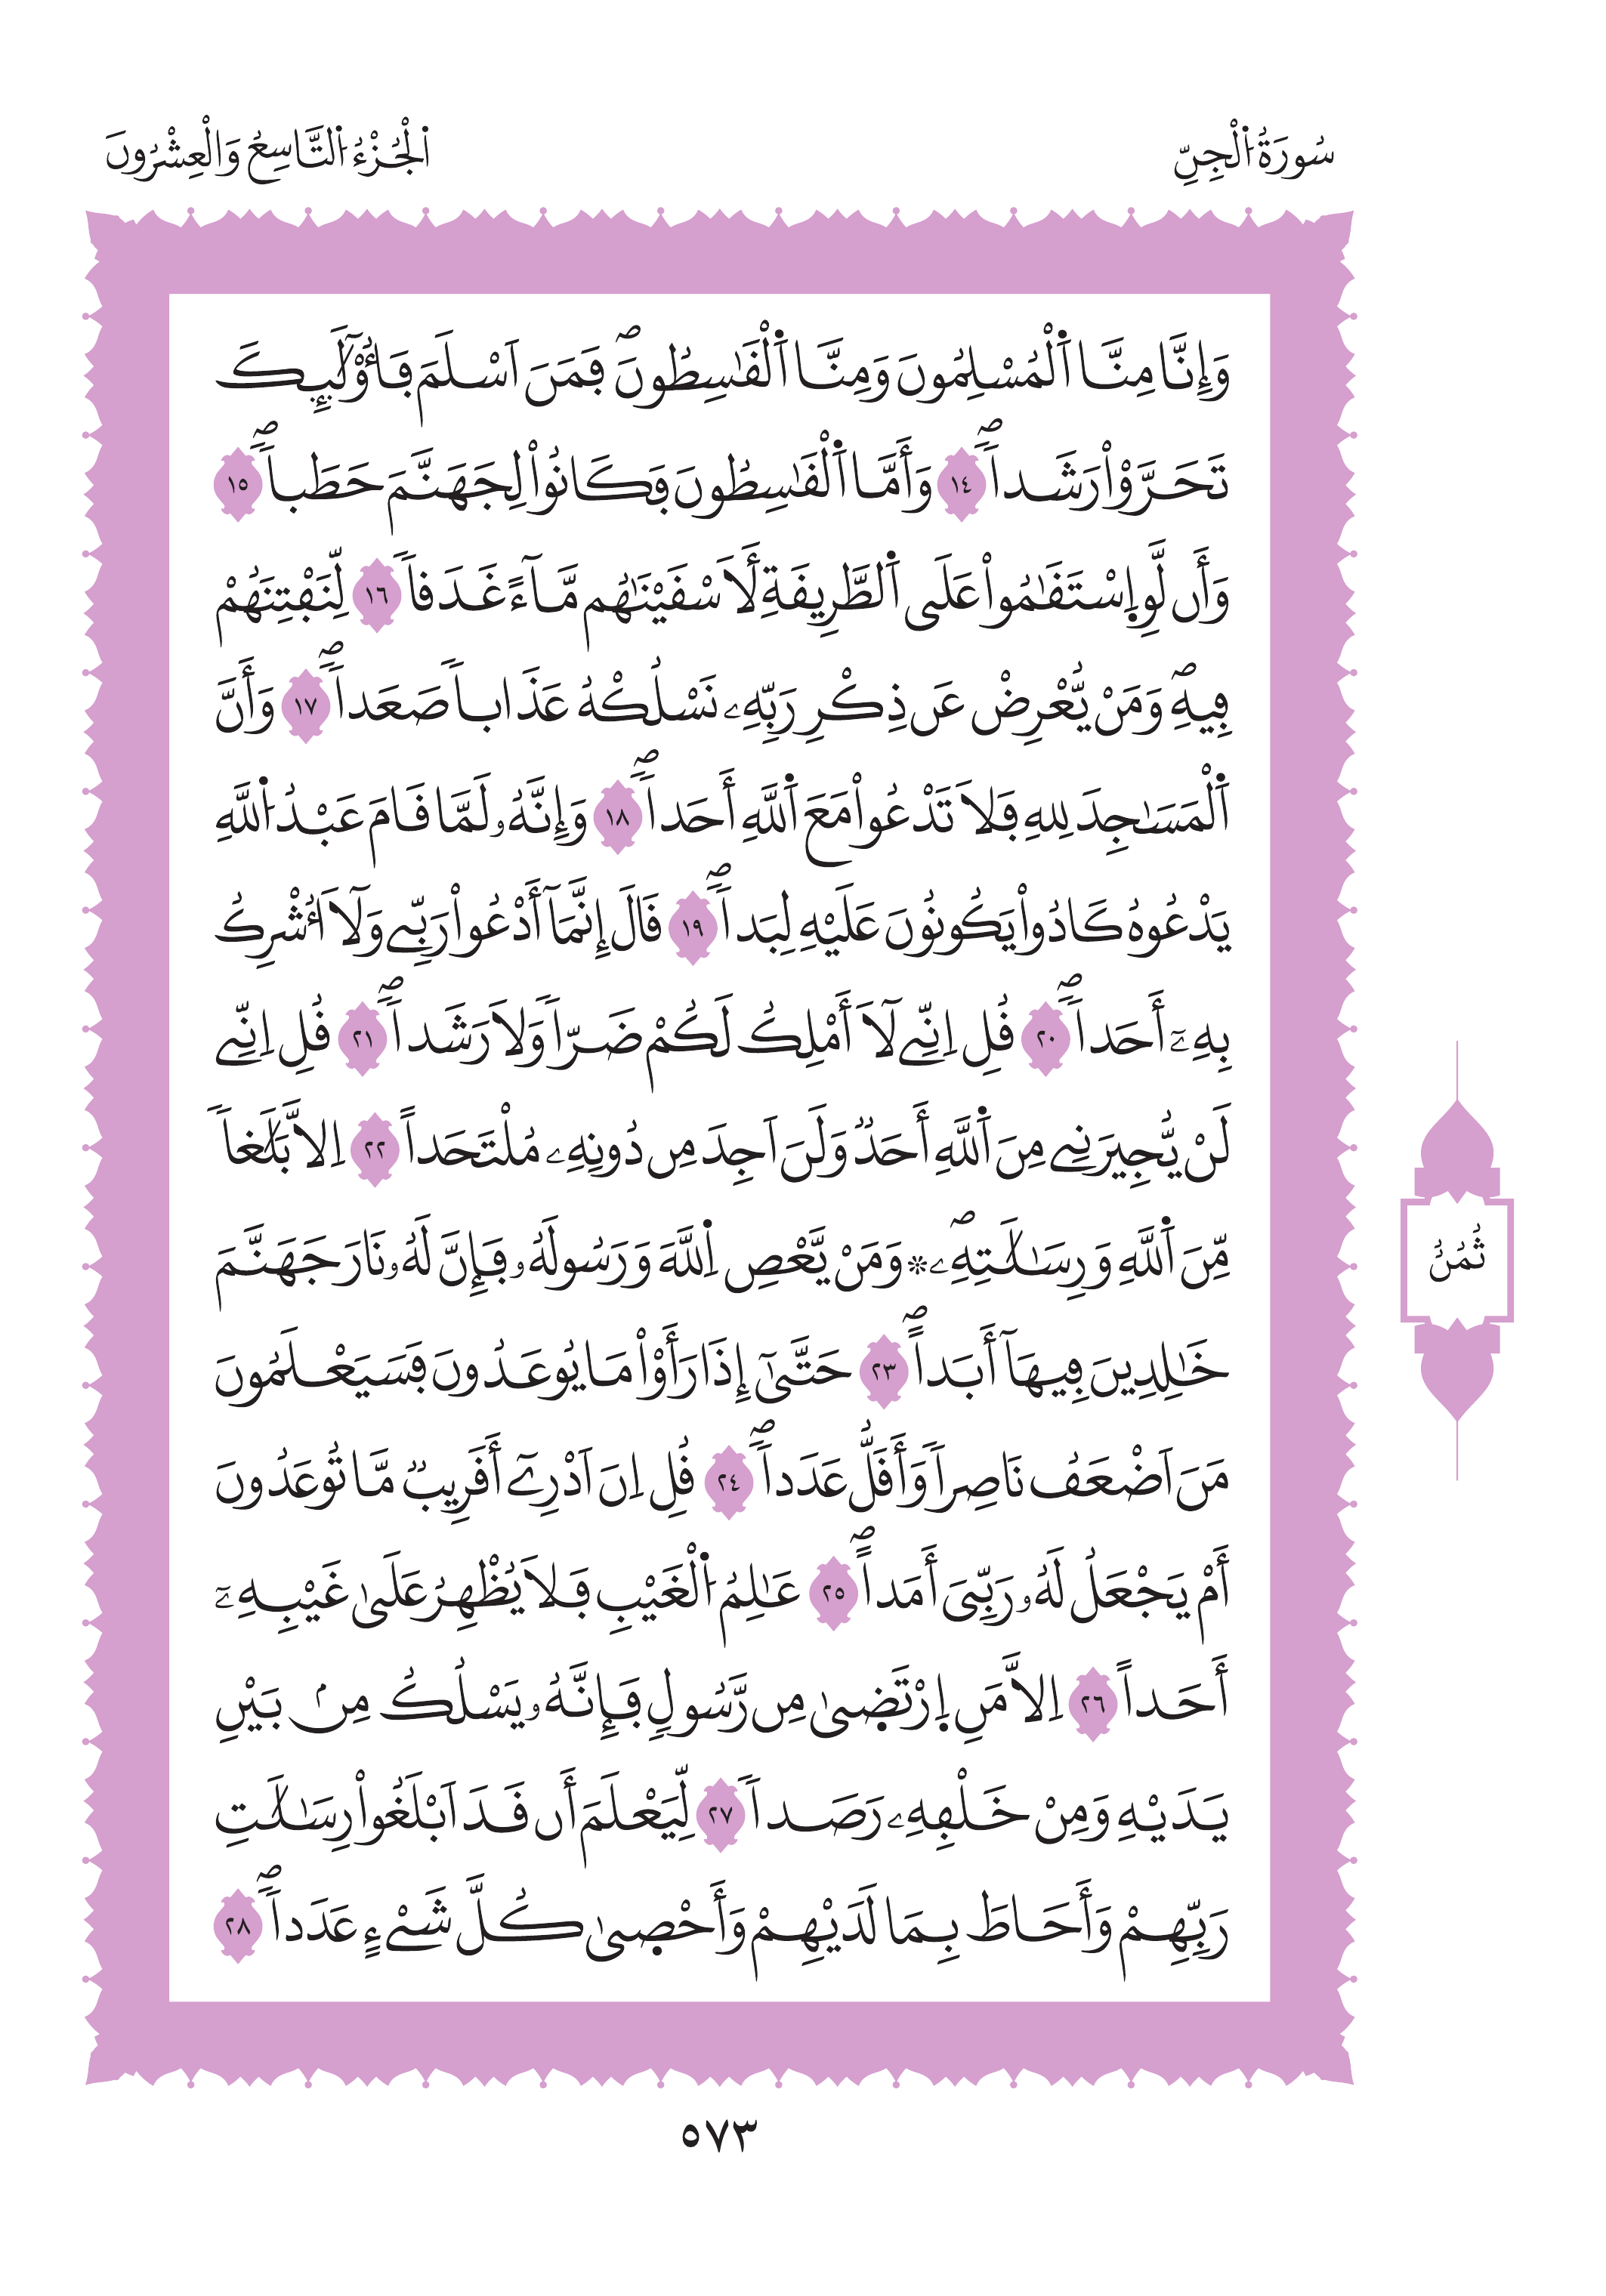 سُورَةُ اُ۬لْجِنِّ
اَ۬لْجُزْءُ اُ۬لتَّاسِعُ وَالْعِشْرُونَ
وَإِنَّا مِنَّا اَ۬لْمُسْلِمُونَ وَمِنَّا اَ۬لْقَٰسِطُونَۖ فَمَنَ اَسْلَمَ فَأُوْلَٰٓئِكَ
تَحَرَّوْاْ رَشَداٗۖ ١٤ وَأَمَّا اَ۬لْقَٰسِطُونَ فَكَانُواْ لِجَهَنَّمَ حَطَباٗۖ ١٥
وَأَن لَّوِ اِ۪سْتَقَٰمُواْ عَلَى اَ۬لطَّرِيقَةِ لَأَسْقَيْنَٰهُم مَّآءً غَدَقاٗ ١٦ لِّنَفْتِنَهُمْ
فِيهِۖ وَمَنْ يُّعْرِضْ عَن ذِكْرِ رَبِّهِۦ نَسْلُكْهُ عَذَاباٗ صَعَداٗۖ ١٧ وَأَنَّ
اَ۬لْمَسَٰجِدَ لِلهِ فَلَا تَدْعُواْ مَعَ اَ۬للَّهِ أَحَداٗۖ ١٨ وَإِنَّهُۥ لَمَّا قَامَ عَبْدُ اُ۬للَّهِ
يَدْعُوهُ كَادُواْ يَكُونُونَ عَلَيْهِ لِبَداٗۖ ١٩ قَالَ إِنَّمَآ أَدْعُواْ رَبِّے وَلَآ أُشْرِكُ
بِهِۦٓ أَحَداٗۖ ٢٠ قُلِ اِنِّے لَآ أَمْلِكُ لَكُمْ ضَرّاٗ وَلَا رَشَداٗۖ ٢١ قُلِ اِنِّے
لَنْ يُّجِيرَنِے مِنَ اَ۬للَّهِ أَحَدٞ وَلَنَ اَجِدَ مِن دُونِهِۦ مُلْتَحَداً ٢٢ اِلَّا بَلَٰغاٗ
مِّنَ اَ۬للَّهِ وَرِسَٰلَٰتِهِۦۖ ۞ وَمَنْ يَّعْصِ اِ۬للَّهَ وَرَسُولَهُۥ فَإِنَّ لَهُۥ نَارَ جَهَنَّمَ
خَٰلِدِينَ فِيهَآ أَبَداًۖ ٢٣ حَتَّيٰٓ إِذَا رَأَوْاْ مَا يُوعَدُونَ فَسَيَعْلَمُونَ
مَنَ اَضْعَفُ نَاصِراٗ وَأَقَلُّ عَدَداٗۖ ٢٤ قُلِ اِنَ اَدْرِےٓ أَقَرِيبٞ مَّا تُوعَدُونَ
أَمْ يَجْعَلُ لَهُۥ رَبِّيَ أَمَداًۖ ٢٥ عَٰلِمُ اُ۬لْغَيْبِ فَلَا يُظْهِرُ عَلَيٰ غَيْبِهِۦٓ
أَحَداً ٢٦ اِلَّا مَنِ اِ۪رْتَض۪يٰ مِن رَّسُولٖ فَإِنَّهُۥ يَسْلُكُ مِنۢ بَيْنِ
يَدَيْهِ وَمِنْ خَلْفِهِۦ رَصَداٗ ٢٧ لِّيَعْلَمَ أَن قَدَ اَبْلَغُواْ رِسَٰلَٰتِ
رَبِّهِمْ وَأَحَاطَ بِمَا لَدَيْهِمْ وَأَحْص۪يٰ كُلَّ شَےْءٍ عَدَداٗۖ ٢٨
ثُمُنُ
٥٧٣